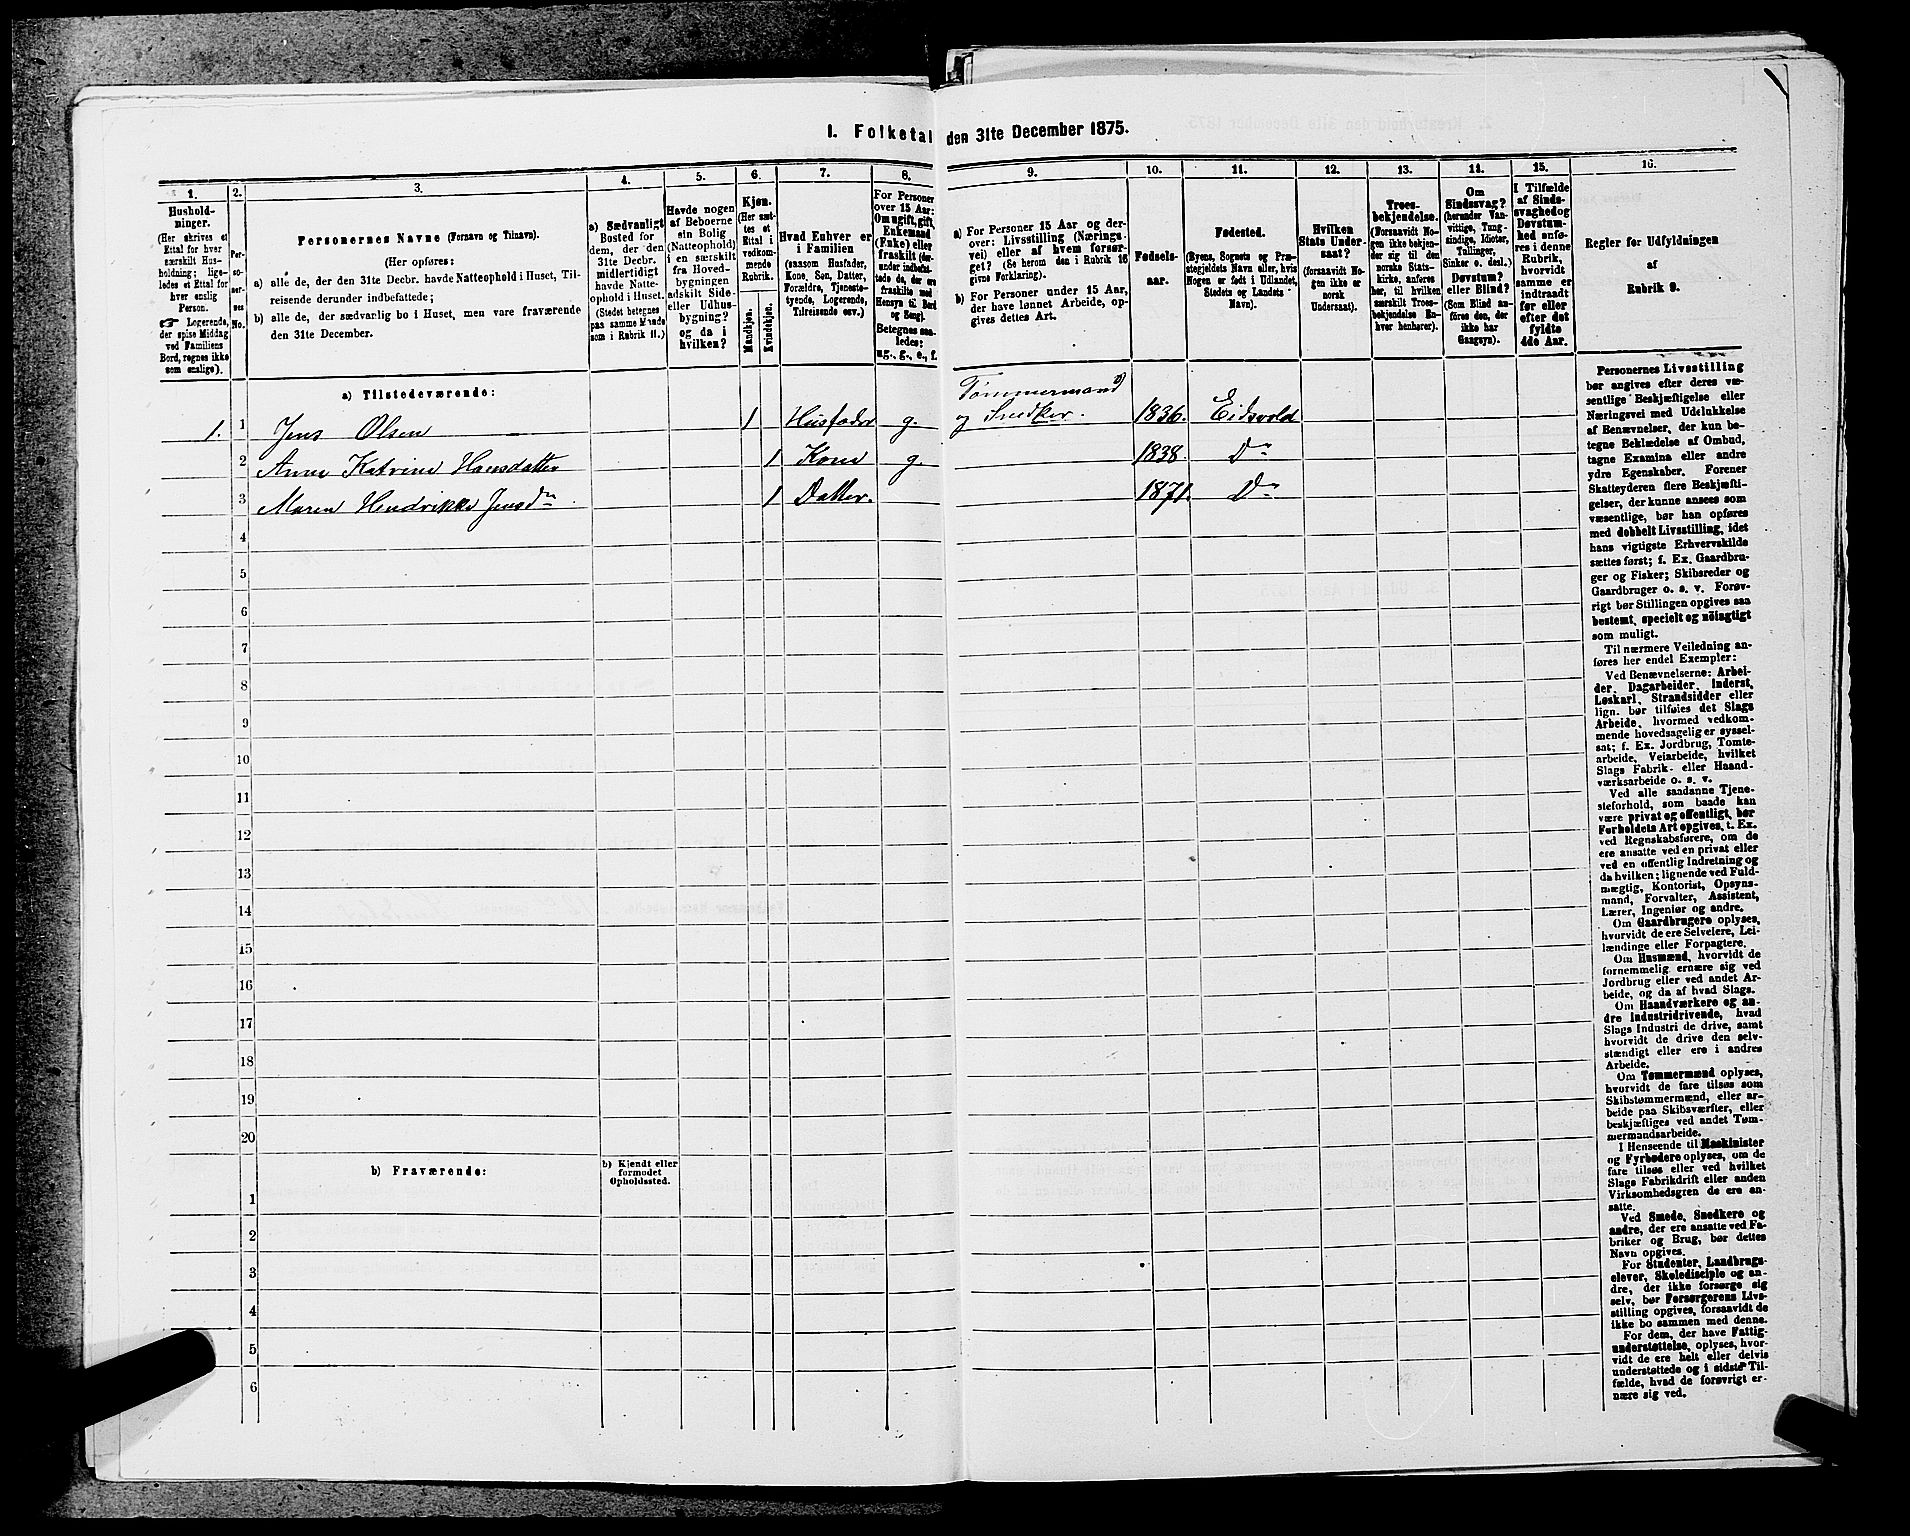 I. Folketal den 31te December 1875.
1.
2.
3.
4.
5.
6.
7.
8.
9.
10.
11.
12.
13.
14.
15.
16.
Hushold-
ninger.
(Her skrives et
Ettal for hver
særskilt Hus-
holdning; lige-
ledes et Ettal for
hver enslig
Person.
☞ Logerende,
der spise Middag
ved Familiens
Bord, regnes ikke
som enslige).
Per-
so-
ner-
nes
No.
Personernes Navne (Fornavn og Tilnavn).
(Her opføres:
a) alle de, der den 31te Decbr. havde Natteophold i Huset, Til-
reisende derunder indbefattede;
b) alle de, der sædvanlig bo i Huset, men vare fraværende
den 31te December.
a) Sædvanligt
Bosted for
dem, der den
31te Decbr.
midlertidigt
havde Natte-
ophold i Huset.
(Stedet betegnes
paa samme Maade
som i Rubrik 11.)
Havde nogen
af Beboerne
sin Bolig
(Natteophold)
i en særskilt
fra Hoved-
bygningen
adskilt Side-
eller Udhus-
bygning?
og da i
hvilken?
Kjøn.
(Her sæt-
tes et
Ettal i
vedkom-
mende
Rubrik.
Mandkjøn.
Kvindekjøn.
Hvad Enhver er
i Familien
(saasom Husfader,
Kone, Søn, Datter,
Forældre, Tjeneste-
tyende, Logerende,
Tilreisende osv.)
For Personer
over 15 Aar:
Om ugift, gift,
Enkemand
(Enke) eller
fraskilt (der-
under indbefat-
tede de, der ere
fraskilte med
Hensyn til Bord
og Seng).
Betegnes saa-
ledes:
ug., g., e., f.
a) For Personer 15 Aar og der-
over: Livsstilling (Nærings-
vei) eller af hvem forsør-
get? (Se herom den i Rubrik 16
givne Forklaring).
b) For Personer under 15 Aar,
der have lønnet Arbeide, op-
gives dettes Art.
Fødsels-
aar.
Fødested.
(Byens, Sognets og Præ-
stegjeldets Navn eller, hvis
Nogen er født i Udlandet,
Stedets og Landets
Navn).
Hvilken
Stats Under-
saat?
(forsaavidt No-
gen ikke er
norsk
Undersaat).
Troes-
bekjendelse.
(Forsaavidt No-
gen ikke bekjen-
der sig til den
norske Stats-
kirke, anføres
her, til hvilken
særskilt Troes-
bekjendelse En-
hver henhører).
Om
Sindssvag?
(herunder Van-
vittige, Tung-
sindige, Idioter,
Tullinger,
Sinker o. desl.)
Døvstum?
eller Blind?
(Som Blind an-
føres den, der
ikke har
Gangsyn).
I Tilfælde
af Sinds-
svaghed og
Døvstum-
hed anfø-
res i denne
Rubrik,
hvorvidt
samme er
indtraadt
før eller
efter det
fyldte
4de Aar.
Regler for Udfyldningen
af
Rubrik 9.
a) Tilstedeværende:
Tømmermand
1. 1 Jens Olsen 1 Husfader g. og Snedker. 1836. Eidsvold
2 Anne Katrine Hansdatter 1 Kone g. 1838. Do
3 Maren Hendrikke Jensd. 1 Datter. 1871. Do
4
5
6
7
8
9
10
11
12
13
14
15
16
17
18
19
20
b) Fraværende:
b) Kjendt eller
formodet
Opholdssted.
1
2
3
4
5
6
Personernes Livsstilling
bør angives efter deres væ-
sentlige Beskjæftigelse eller
Næringsvei med Udelukkelse
af Benævnelser, der kun be-
tegne Beklædelse af Ombud,
tagne Examina eller andre
ydre Egenskaber. Forener
Skatteyderen flere Beskjæfti-
gelser, der kunne ansees som
væsentlige, bør han opføres
med dobbelt Livsstilling, idet
hans vigtigste Erhvervskilde
sættes først; f. Ex. Gaardbru-
ger og Fisker; Skibsreder og
Gaardbruger o. s. v. Forøv-
rigt bør Stillingen opgives saa
bestemt, specielt og nöiagtigt
som muligt.
Til nærmere Veiledning an-
føres her endel Exempler:
Ved Benævnelserne: Arbei-
der, Dagarbeider, Inderst,
Løskarl, Strandsidder eller
lign. bør tilføies det Slags
Arbeide, hvormed vedkom-
mende hovedsagelig er syssel-
sat; f. Ex. Jordbrug, Tomte-
arbeide, Veiarbeide, hvilket
Slags Fabrik- eller Haand-
værksarbeide o. s. v.
Ved alle saadanne Tjene-
steforhold, som baade kan
være privat og offentligt, bør
Forholdets Art opgives, t. Ex.
ved Regnskabsførere, om de
ere ansatte ved en privat eller
ved en offentlig Indretning og
da hvilken; lignende ved Fuld-
mægtig, Kontorist, Opsyns-
mand, Forvalter, Assistent,
Lærer, Ingeniør og andre.
Om Gaardbrugere oplyses,
hvorvidt de ere Selveiere, Lei-
lændinge eller Forpagtere.
Om Husmænd, hvorvidt de
fornemmelig ernære sig ved
Jordbrug eller ved andet Ar-
beide, og da af hvad Slags.
Om Haandværkere og an-
dre Industridrivende, hvad
Slags Industri de drive, samt
hvorvidt de drive den selv-
stændigt eller ere i andres
Arbeide.
Om Tømmermænd oplyses,
hvorvidt de fare tilsøs som
Skibstømmermænd, eller ar-
beide paa Skibsværfter, eller
beskjæftiges ved andet Tøm-
mermandsarbeide.
I Henseende til Maskinister
og Fyrbødere oplyses, om de
fare tilsøs eller ved hvilket
Slags Fabrikdrift eller anden
Virksomhedsgren de ere an-
satte.
Ved Smede, Snedkere og
andre, der ere ansatte ved Fa-
briker og Brug, bør dettes
Navn opgives.
For Studenter, Landbrugs-
elever, Skoledisciple og an-
dre, der ikke forsørge sig
selv, bør Forsørgerens Livs-
stilling opgives, forsaavidt de
ikke bo sammen med denne.
For dem, der have Fattig-
understøttelse, oplyses, hvor-
vidt de ere helt eller delvis
understøttede og i sidste Til-
fælde, hvad de forøvrigt er-
nære sig ved.